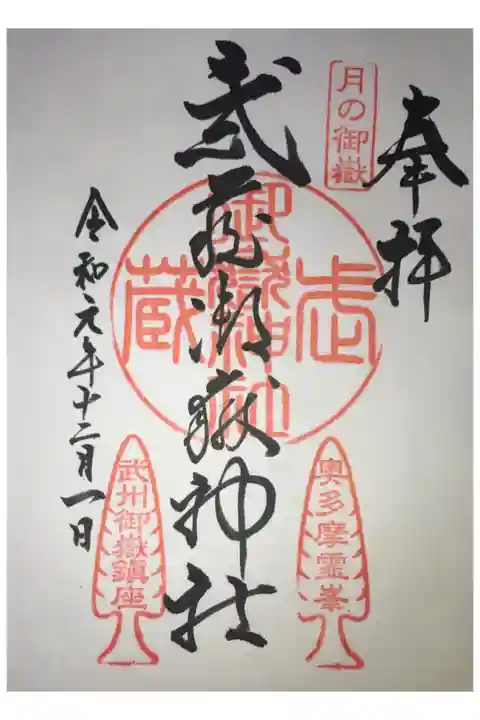 奉拝
月の御嶽
奥多摩霊峯
武蔵御嶽神社
武蔵御嶽神社
武州御嶽鎮座
令和元年十二月一日